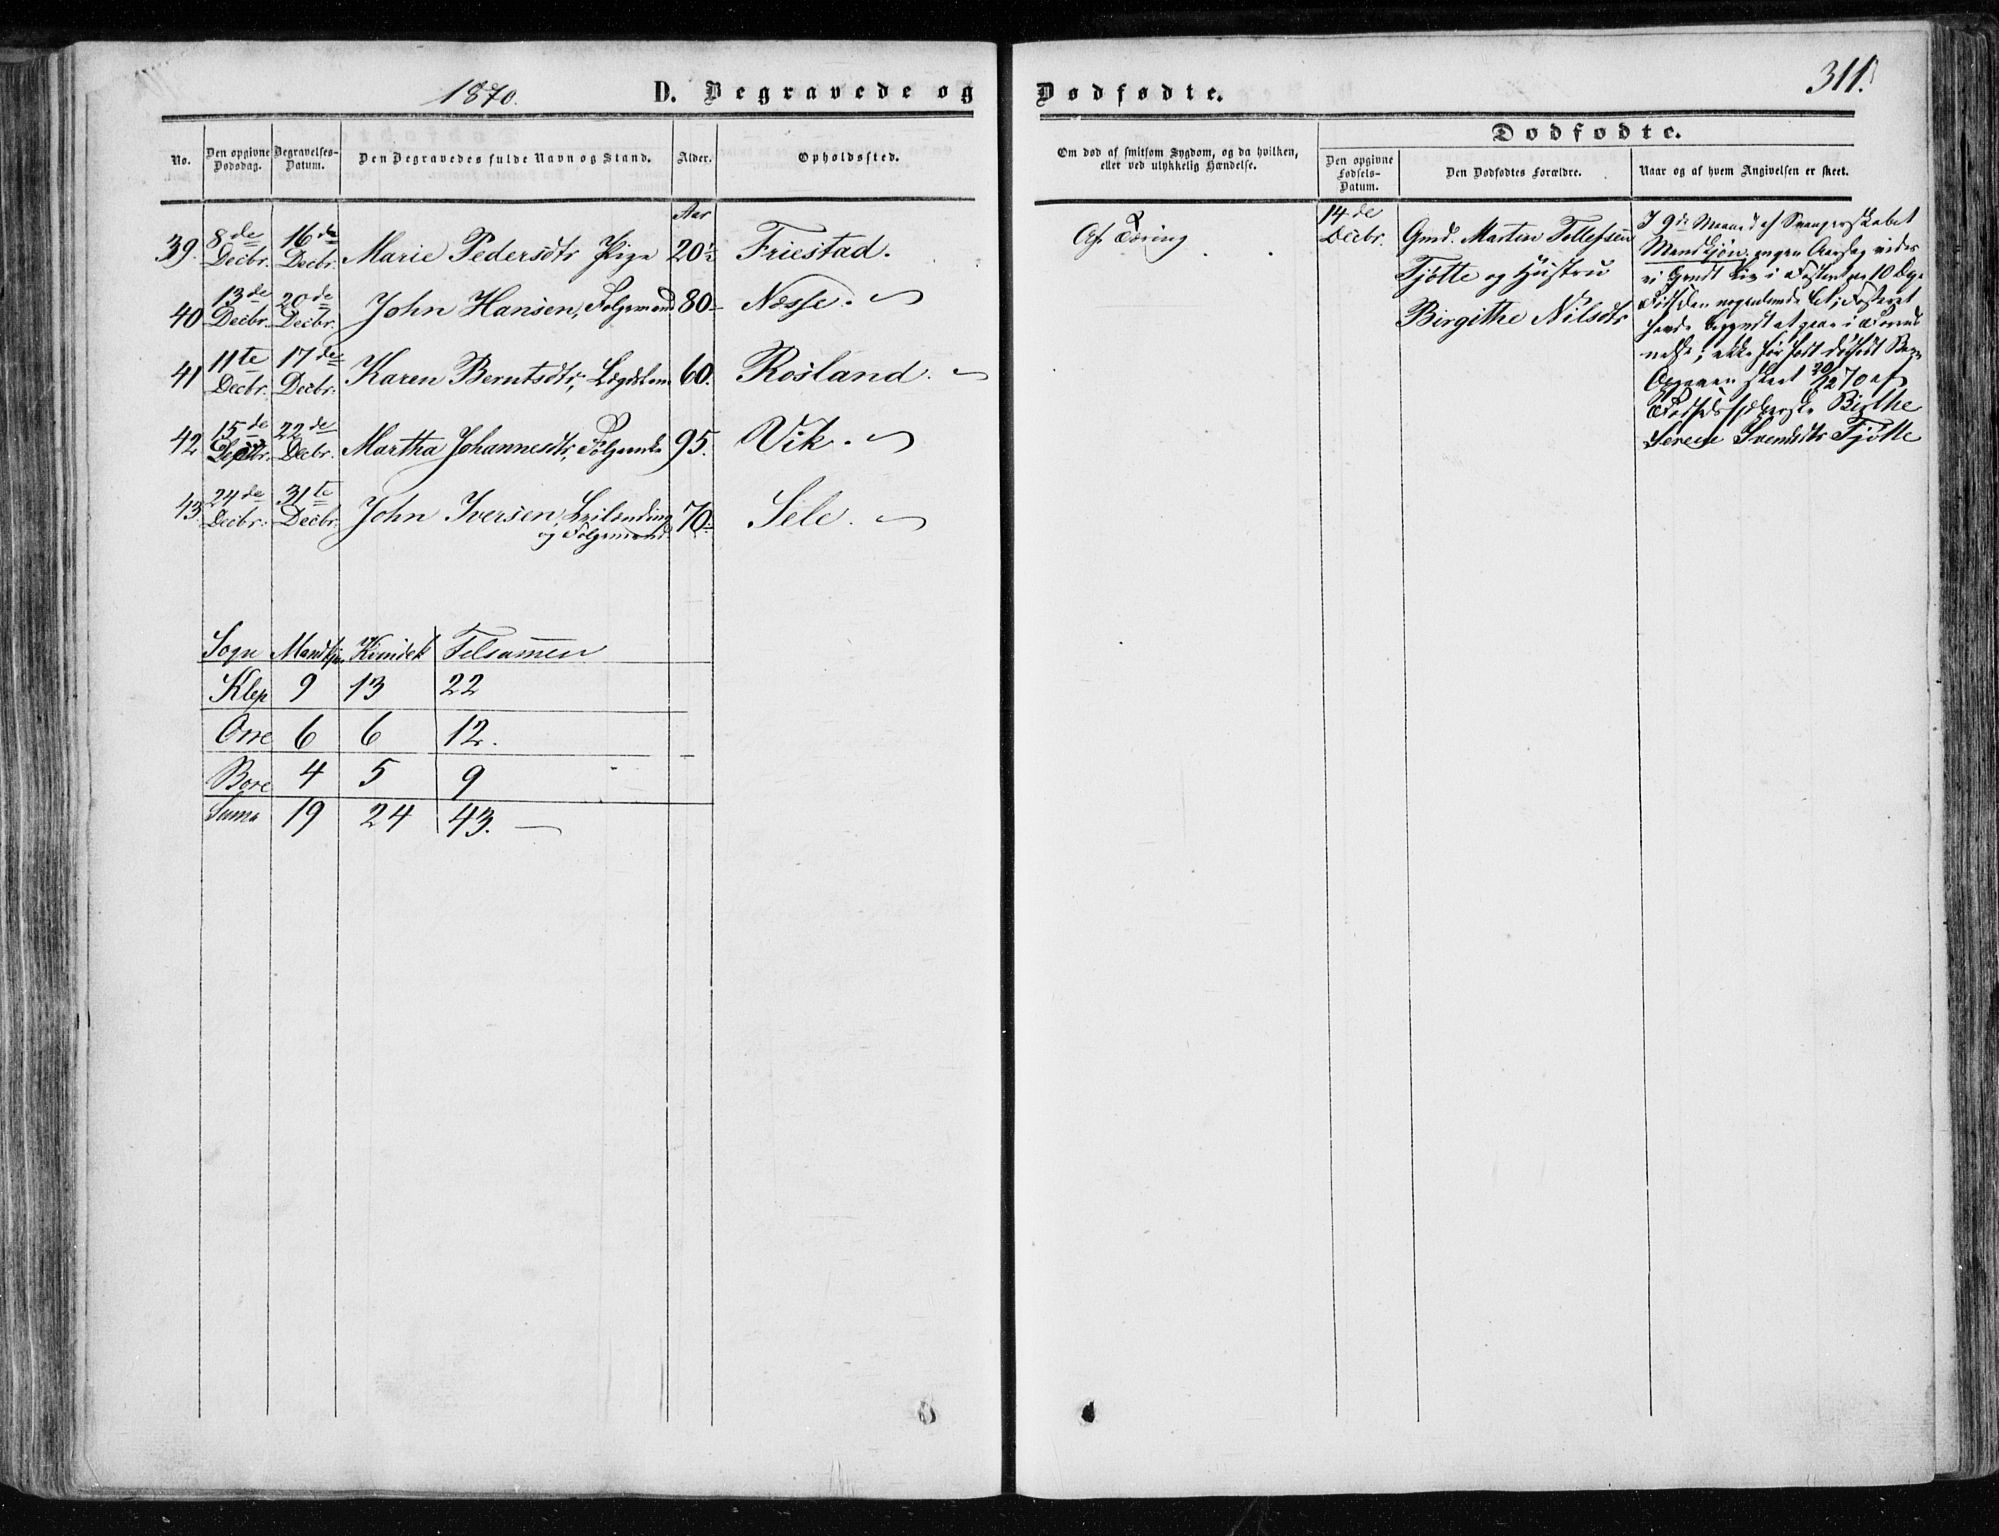 1870.
D. Begravede og
Dødfødte.
311.
No.
Den opgivne Dødsdag.
Begravelses-Datum.
Den Begravedes fulde Navn og Stand.
Alder.
Opholdssted.
Om død af smitsom Sygdom, og da hvilken, eller ved ulykkelig Hændelse.
Dødfødte.
Den opgivne Fødsels-Datum.
Den Dødfødtes Forældre.
Naar og af hvem Angivelsen er skeet.
Aar
39. 8de Decbr. 16de Decbr. Marie Pedersdtr Pige 20½ Friestad. Af Tæring
40 13de Decbr. 20de Decbr. John Hansen, Folgemand 80 Næsse.
41 11te Decbr. 17de Decbr. Karen Berntsdtr, Lægdslem 60. Rosland.
42 15de Decbr. 22de Decbr. Martha Johannesdtr, Folgeenke 95. Vik.
43. 24de Decbr. 31te Decbr. John Iversen, Leilending og Folgemand 70 Sele.
14de Decbr.
Gmd. Martin Tollefsen
Tjøtte og Hustru
Birgithe Nilsdtr
I 9de Maaned af Svangerskabet
Mandkjøn; ingen Aarsag vides
Liv i Fosteret 10 Dage
Fosteret
havde begyndt at gaae i Forraad-
nelse; ikke før født dødfødt Barn
Opgaven skeet 20/12 70 af
Birthe
Serene Svendsdtr Tjøtte
Sogn Mandkjøn Kvindek Tilsammen
Klep 9 13 22
Orre 6 6 12.
Bore 4 5 9
Suma 19 24 43.